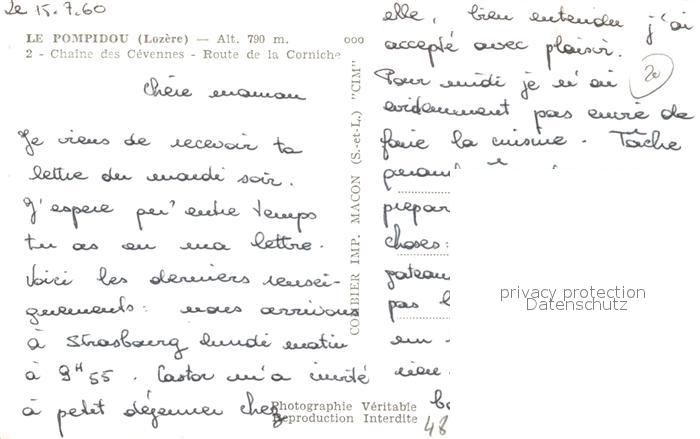 le 15.7.60
LE POMPIDOU (Lozère) — Alt. 790 m. 000
2 - Chaîne des Cévennes - Route de la Corniche
Chère maman
Je viens de recevoir ta
lettre du mardi soir.
J'espère qu'entre temps
tu as eu ma lettre.
Voici les derniers rensei-
gnements : nous arrivons
à Strasbourg lundi matin
à 9H55. Castor m'a invité
à petit déjeuner chez
COMBIER IMP. MACON (S.-et-L.) "CIM"
Photographie Véritable
Reproduction Interdite
elle, bien entendu j'ai
accepté avec plaisir.
Pour midi je n'ai 20
évidemment pas envie de
faire la cuisine. Tâche
prépar
choses :
gateau
pas
rien
48
privacy protection
Datenschutz